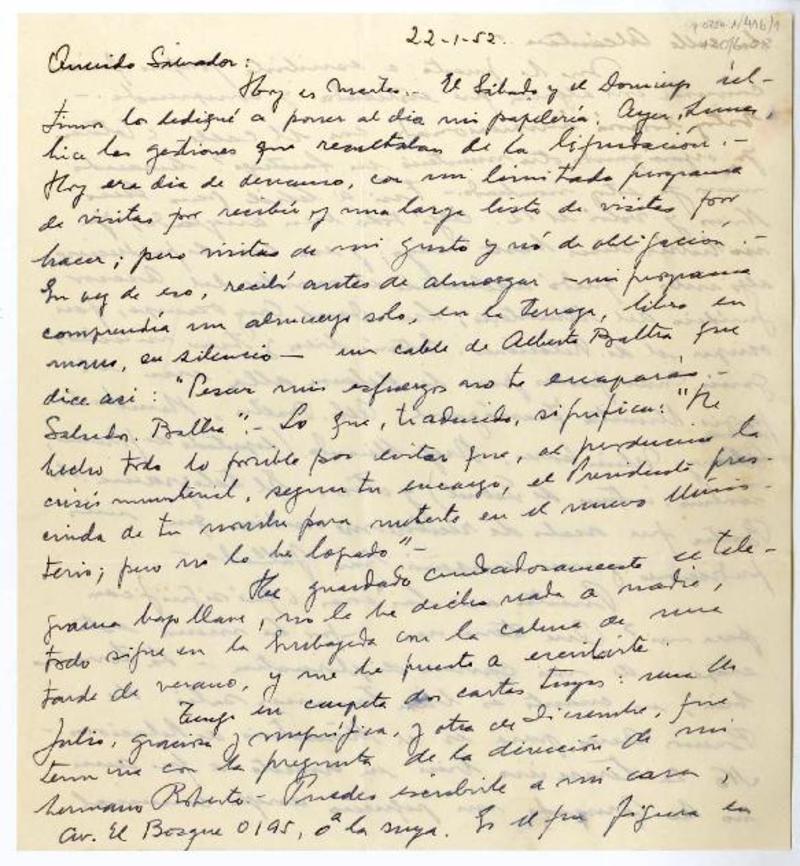 22-1-52.
Querido Salvador:
Hoy es Martes.- El Sábado y el Domingo úl-
timos los dediqué a poner al día mi papelería. Ayer, Lunes,
hice las gestiones que resultaban de la liquidación.-
Hoy era día de descanso, con un limitado programa
de visitas por recibir y una larga lista de visitas por
hacer; pero visitas de mi gusto y nó de obligación.-
En vez de eso, recibí antes de almorzar -mi programa
comprendía un almuerzo solo, en la terraza, libro en
mano, en silencio- un cable de Alberto Baltra que
dice así: "Pesar mis esfuerzos no te escaparás.-
Salvador. Baltra".- Lo que, traducido, significa: "He
hecho todo lo posible por evitar que, al producirse la
crisis ministerial, según tu encargo, el Presidente pres-
cinda de tu nombre para meterte en el nuevo Minis-
terio; pero no lo he logrado"-
He guardado cuidadosamente el tele-
grama bajo llave, no le he dicho nada a nadie,
todo sigue en la Embajada con la calma de una
tarde de verano, y me he puesto a escribirte.
Tengo en carpeta dos cartas tuyas: una de
Julio, graciosa y magnífica, y otra de Diciembre, que
termina con la pregunta de la dirección de mi
hermano Roberto.- Puedes escribirle a mi casa,
Av. El Bosque 0195, ó a la suya. Es el que figura en